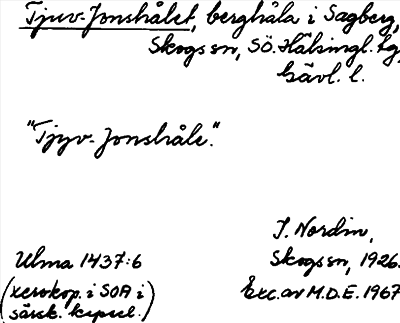 Tjuv-Jonshålet, berghåla i Sagberg,
Skogs sn, SÖ. Hälsingl. tg,
Gävl. l.
"Tjyv-Jonshåle."
I. Nordin,
Ulma 1437:6
Skogs sn, 1926.
(xerokop. i SOA i
särsk. kapsel.)
Exc. av M.D.E. 1967